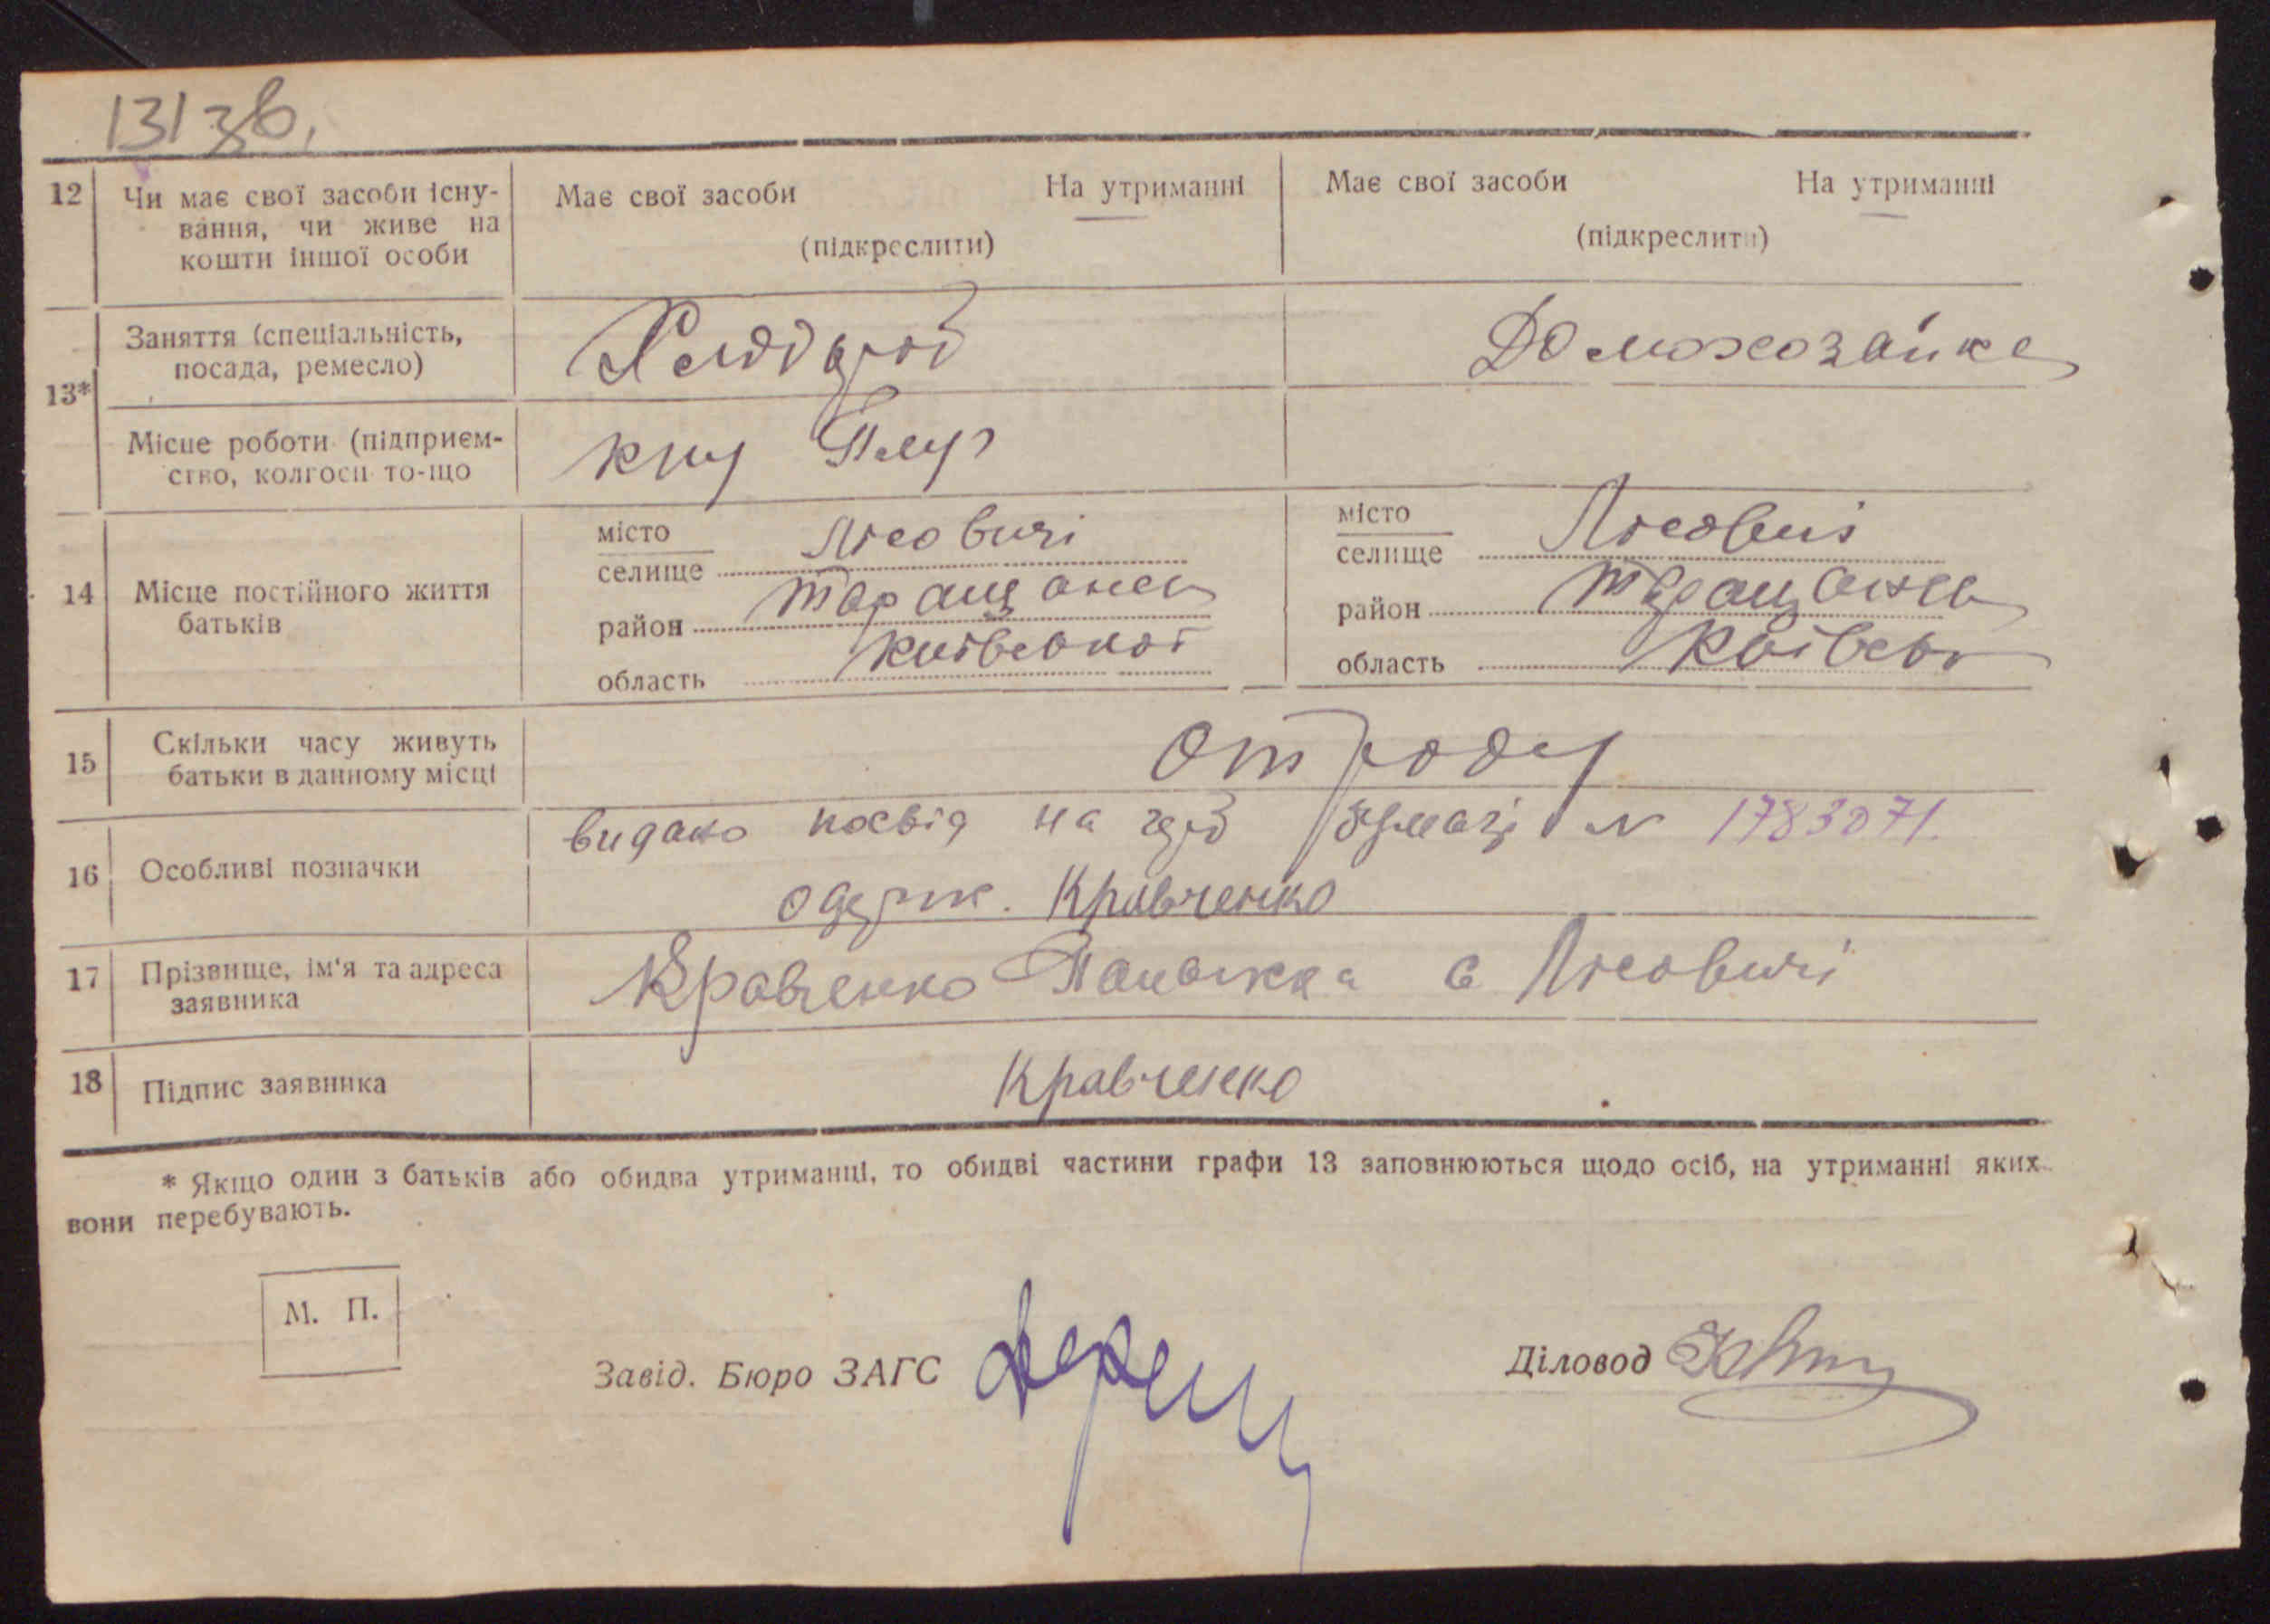 131 зв.
12 Чи має свої засоби існу-
вання, чи живе на
кошти іншої особи
Має свої засоби На утриманні
(підкреслити)
Має свої засоби На утриманні
(підкреслити)
13*
Заняття (спеціальність,
посада, ремесло)
Хлібороб
Домохозайка
Місце роботи (підприєм-
ство, колгосп то-що
14 Місце постійного життя
батьків
місто
селище Лісовичі
район Таращанск
область Київської
місто
селище Лісовичі
район Таращанск
область Київськ
15 Скільки часу живуть
батьки в данному місці
от роду
16 Особливі позначки
видано посвід на № 1783071.
одерж. Кравченко
17 Прізвище, ім'я та адреса
заявника
Кравченко с Лісовичі
18 Підпис заявника
Кравченко
* Якщо один з батьків або обидва утриманці, то обидві частини графи 13 заповнюються щодо осіб, на утриманні яких
вони перебувають.
М. П.
Завід. Бюро ЗАГС
Діловод